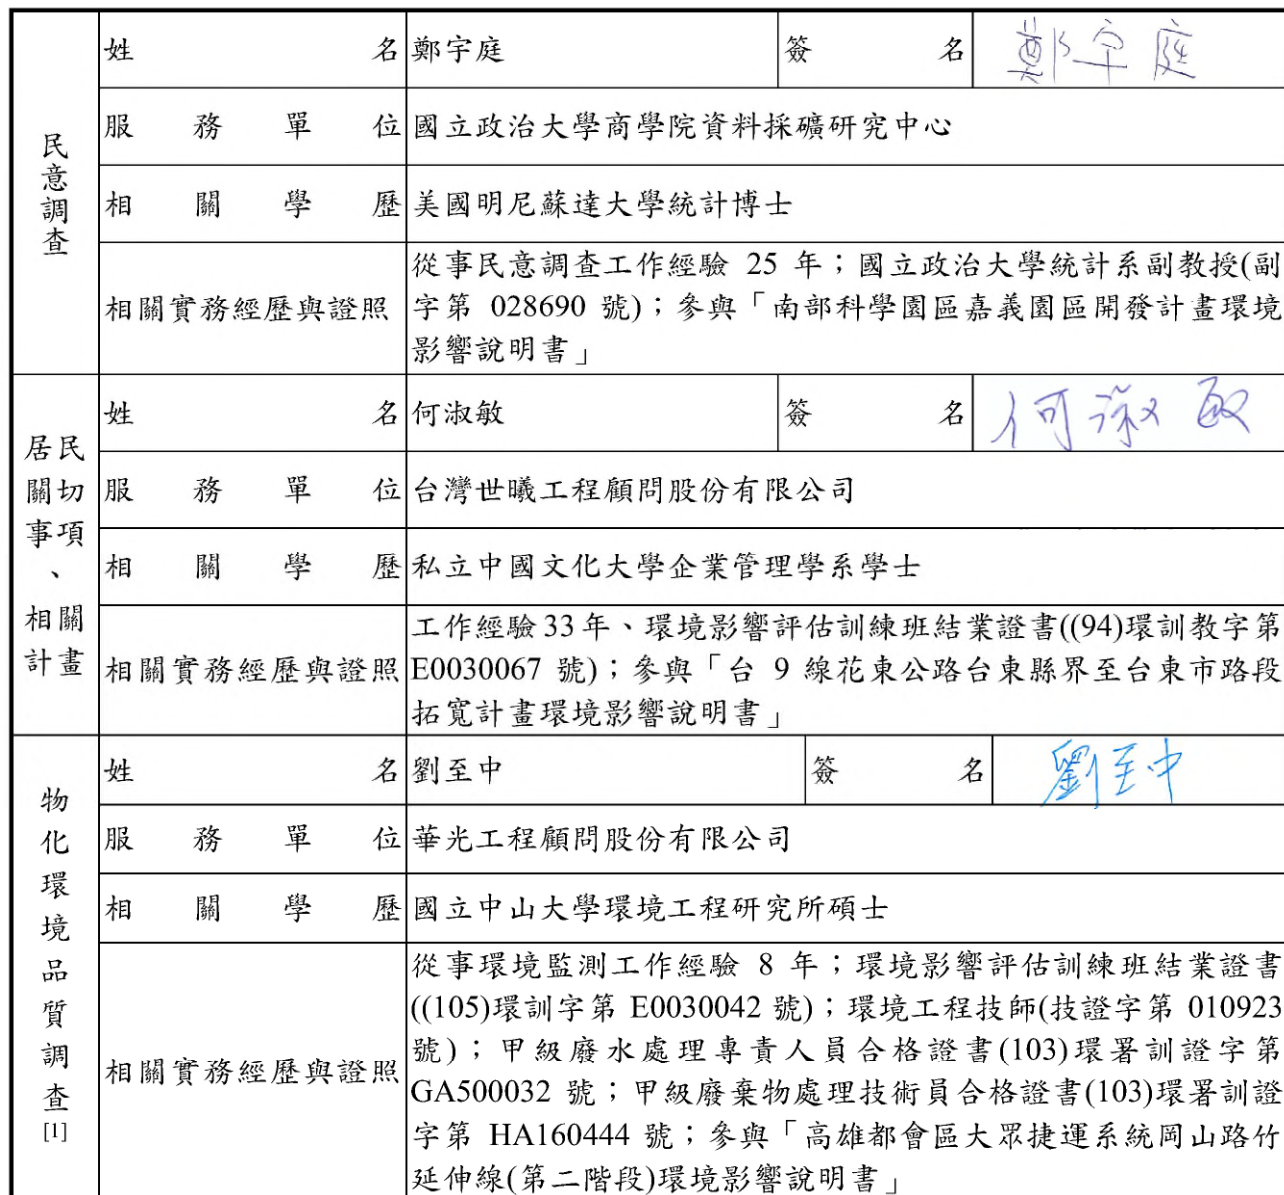 民意調查
姓名 鄭宇庭 簽名 鄭宇庭
服務單位 國立政治大學商學院資料採礦研究中心
相關學歷 美國明尼蘇達大學統計博士
相關實務經歷與證照 從事民意調查工作經驗 25 年；國立政治大學統計系副教授(副
字第 028690 號)；參與「南部科學園區嘉義園區開發計畫環境
影響說明書」
居民
關切
事項
、
相關
計畫
姓名 何淑敏 簽名 何淑敏
服務單位 台灣世曦工程顧問股份有限公司
相關學歷 私立中國文化大學企業管理學系學士
相關實務經歷與證照 工作經驗 33 年、環境影響評估訓練班結業證書((94)環訓教字第
E0030067 號)；參與「台 9 線花東公路台東縣界至台東市路段
拓寬計畫環境影響說明書」
物化環境品質調查
[1]
姓名 劉至中 簽名 劉至中
服務單位 華光工程顧問股份有限公司
相關學歷 國立中山大學環境工程研究所碩士
相關實務經歷與證照 從事環境監測工作經驗 8 年；環境影響評估訓練班結業證書
((105)環訓字第 E0030042 號)；環境工程技師(技證字第 010923
號)；甲級廢水處理專責人員合格證書(103)環署訓證字第
GA500032 號；甲級廢棄物處理技術員合格證書(103)環署訓證
字第 HA160444 號；參與「高雄都會區大眾捷運系統岡山路竹
延伸線(第二階段)環境影響說明書」